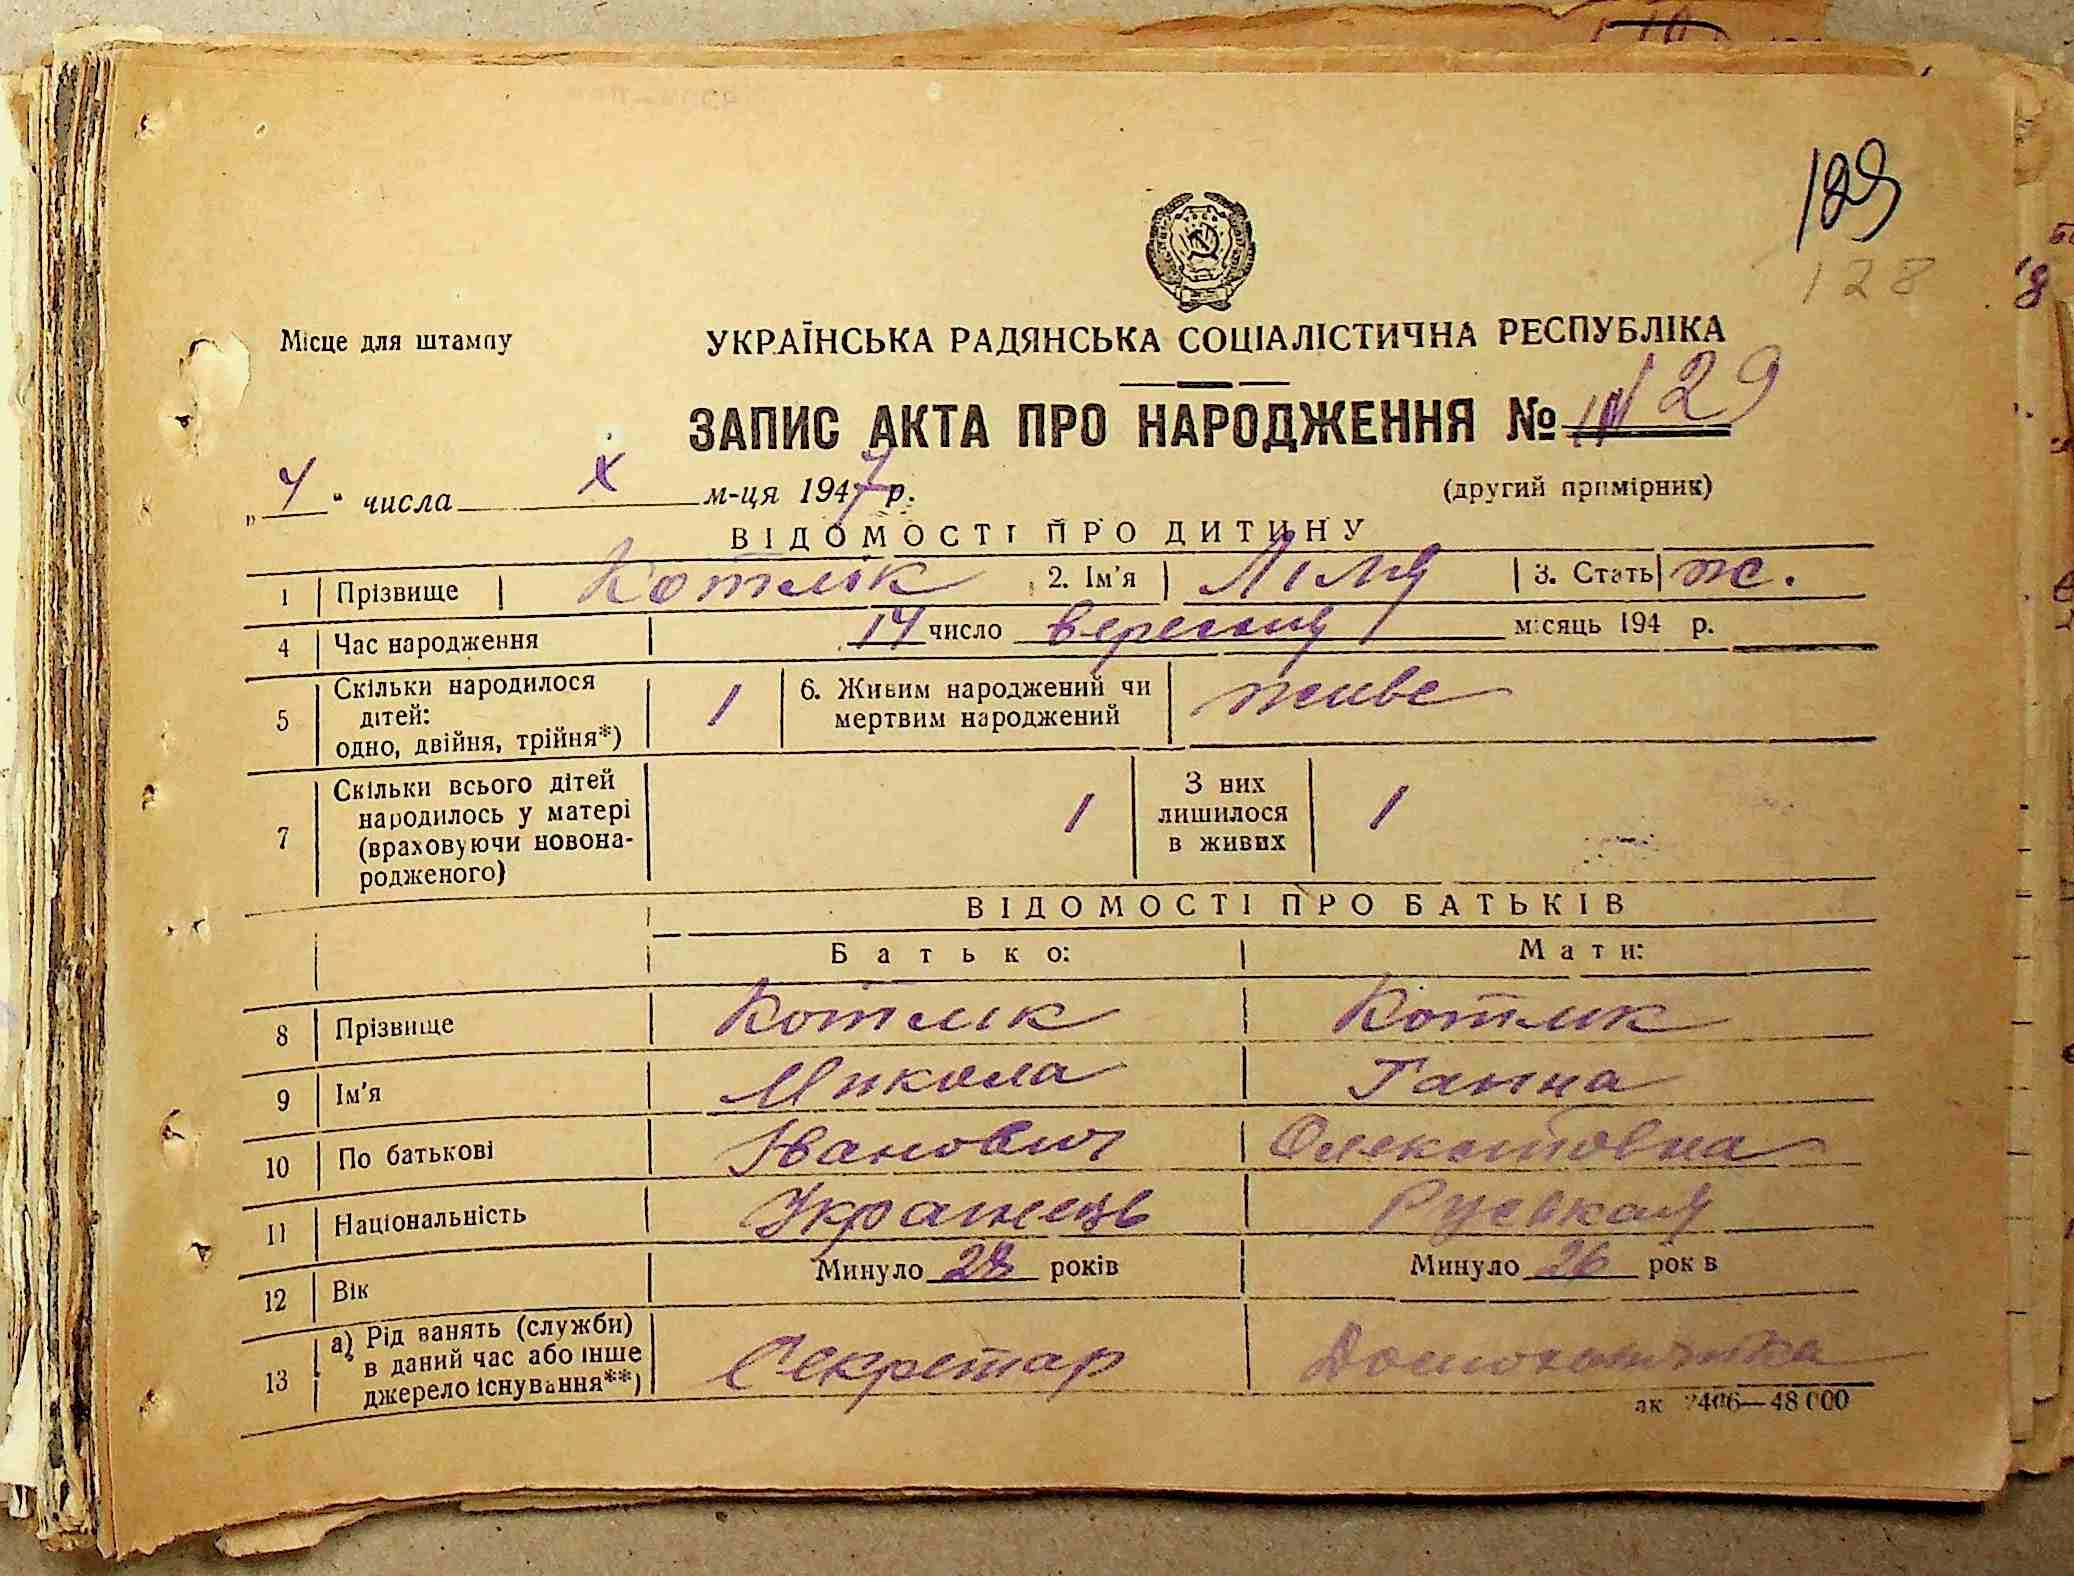 129
128
Місце для штампу
УКРАЇНСЬКА РАДЯНСЬКА СОЦІАЛІСТИЧНА РЕСПУБЛІКА
ЗАПИС АКТА ПРО НАРОДЖЕННЯ № 29
„ 4 " числа X м-ця 1947 р. (другий примірник)
ВІДОМОСТІ ПРО ДИТИНУ
1 Прізвище Котлік 2. Ім'я Ліля 3. Стать ж.
4 Час народження 14 число вересня місяць 194 р.
5 Скільки народилося дітей: одно, двійня, трійня*) 1 6. Живим народжений чи мертвим народжений живе
7 Скільки всього дітей народилось у матері (враховуючи новонародженого) 1 З них лишилося в живих 1
ВІДОМОСТІ ПРО БАТЬКІВ
Батько: Мати:
8 Прізвище Котлік Котлік
9 Ім'я Микола Ганна
10 По батькові Іванович
11 Національність Українець Руськая
12 Вік Минуло 28 років Минуло 26 рок в
13 а) Рід занять (служби) в даний час або інше джерело існування**) Секретар Домохазяйка
ак 2406—48 000